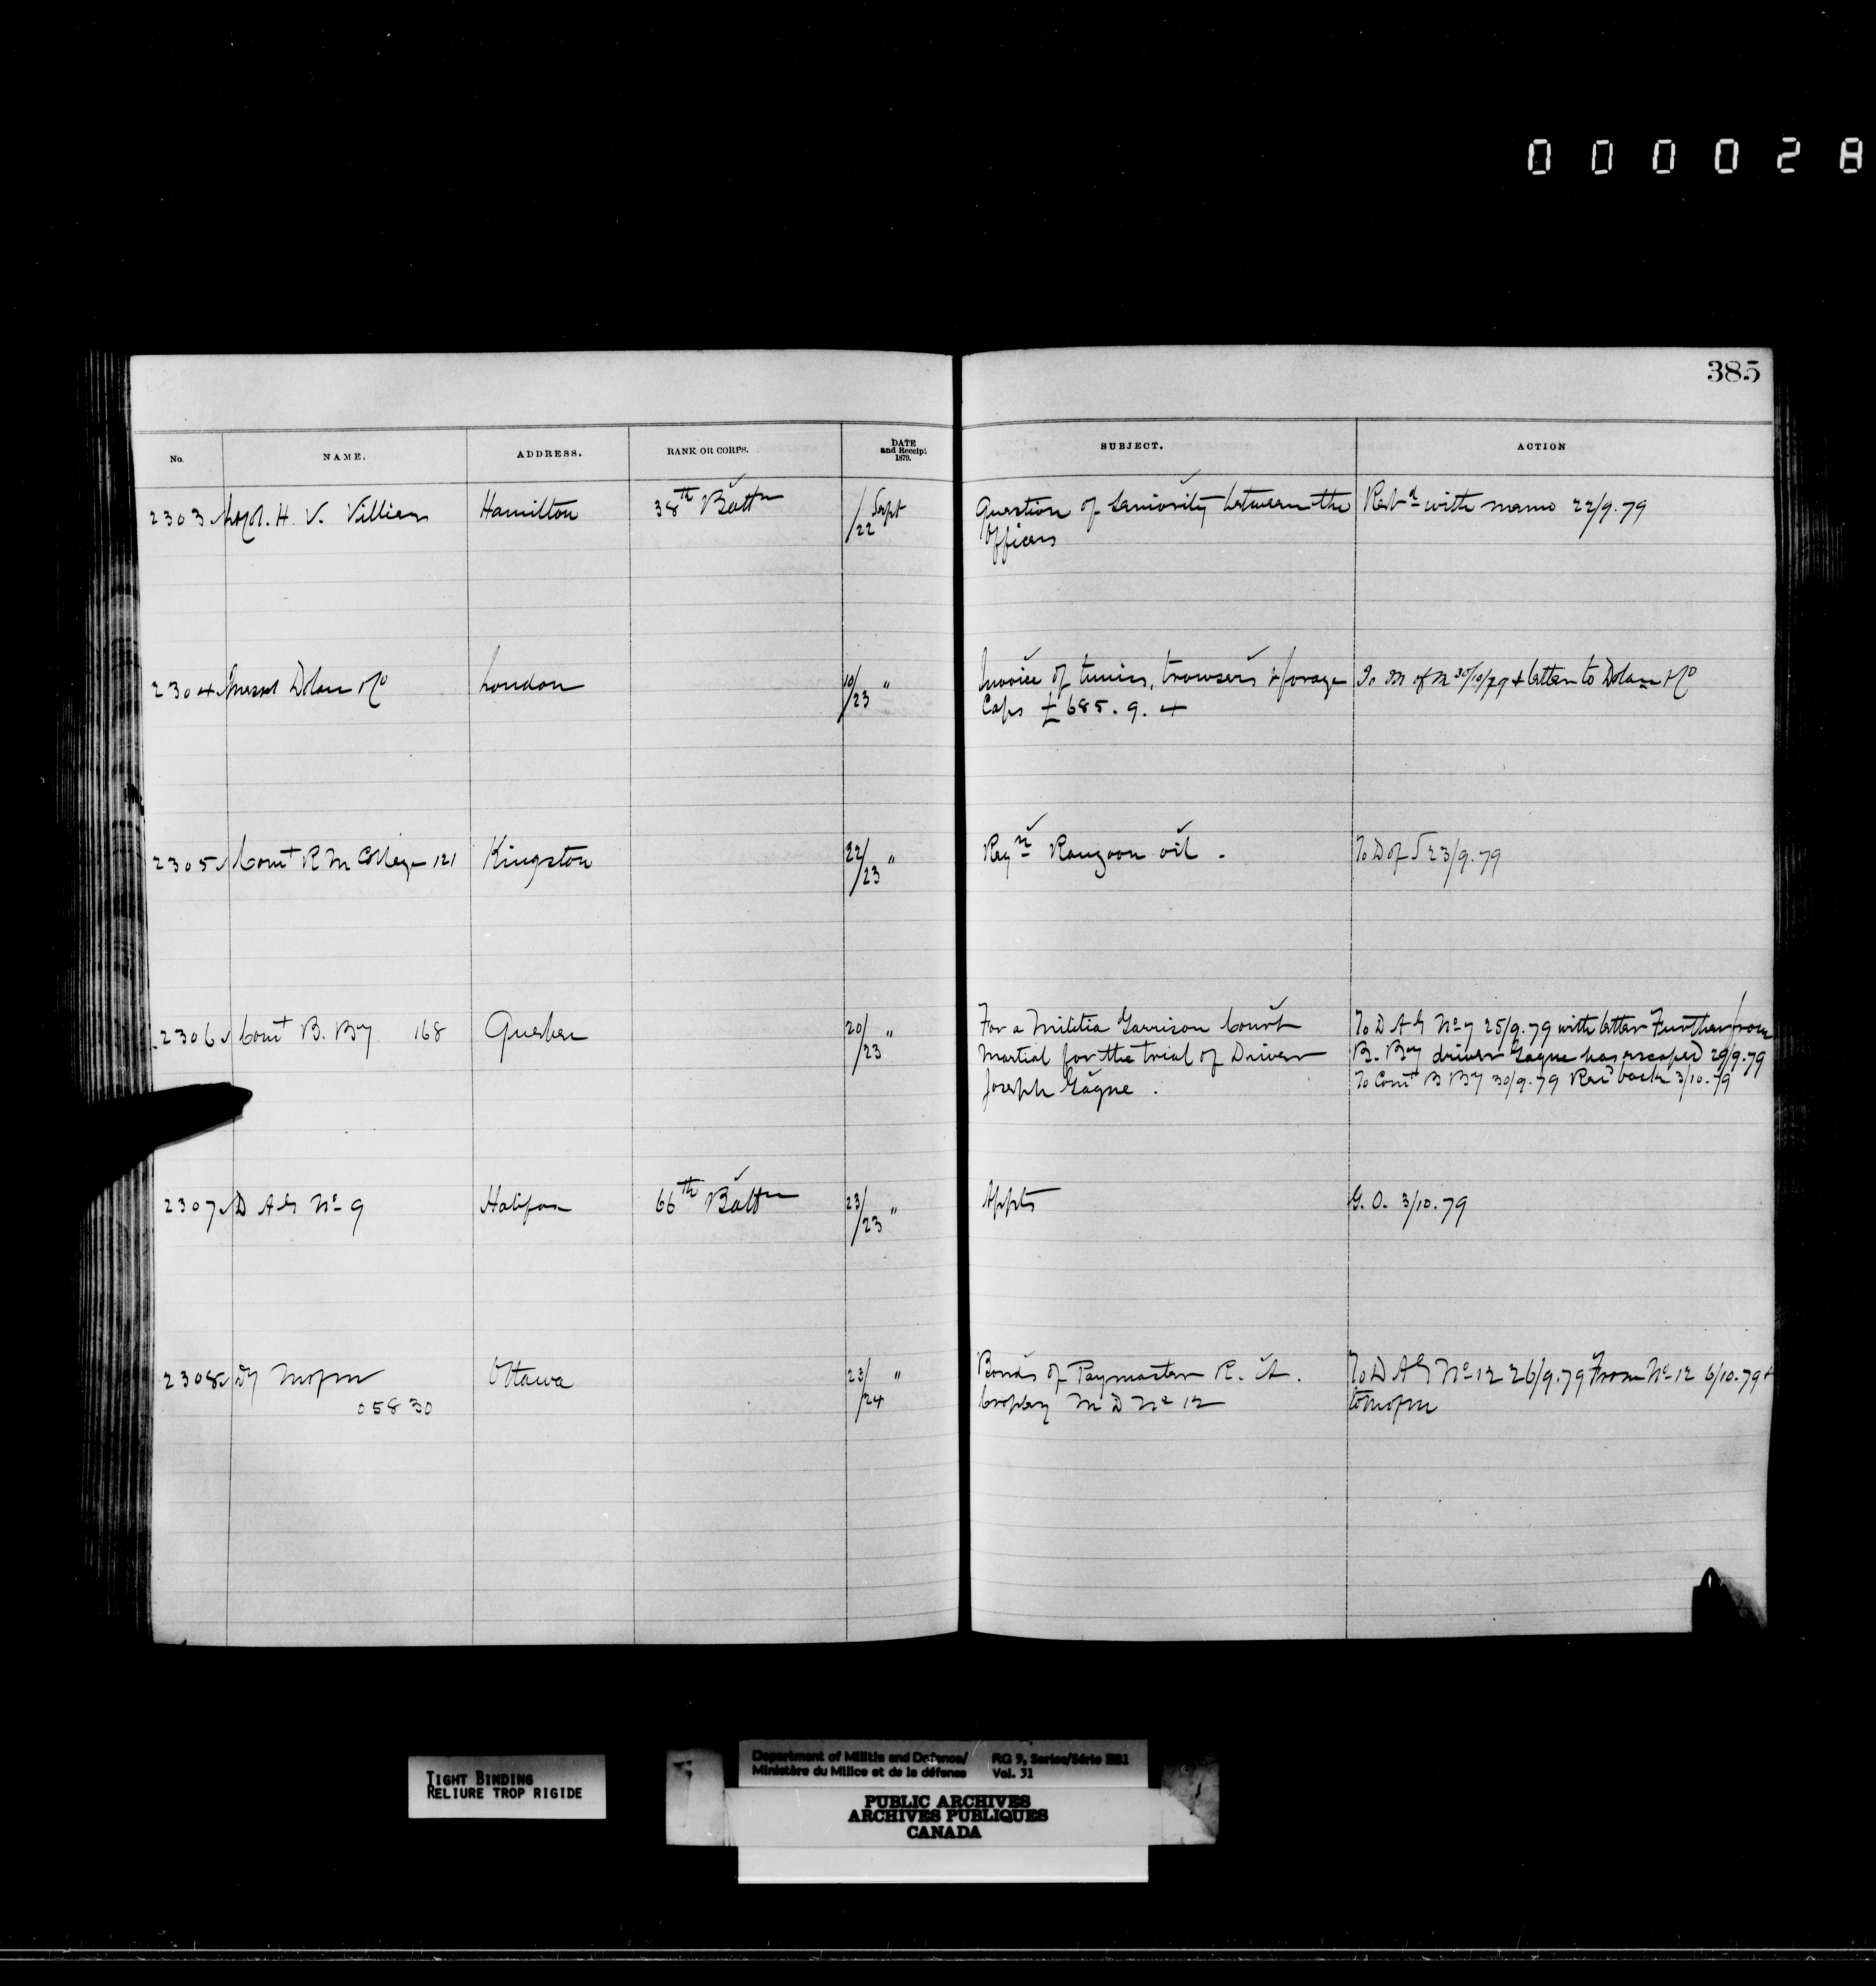 000028
385
No. NAME. ADDRESS. RANK OR CORPS. DATE and Receipt 1879. SUBJECT. ACTION
2303 H. V. Villiers Hamilton 38th Battn /22 Sept Question of Seniority between the Retd with memo 22/9.79
Officers
2304 Messrs Dolan &Co London 10/23 " Invoice of tunics, trowsers & forage To M of M 30/10/79 & letter to Dolan &Co
Caps £685.9.4
2305 Comt R M College 121 Kingston 22/23 " Reqn Rangoon oil. To D of S 23/9.79
2306 Comt B. By 168 Quebec 20/23 " For a Militia Garrison Court To D A G No 7 25/9.79 with letter Further from
Martial for the trial of Driver B. By driver Gagne has escaped 29/9.79
Joseph Gagne. To Comt B By 30/9.79 Recd back 3/10.79
2307 D A G No 9 Halifax 66th Battn 23/23 " Appts G.O. 3/10.79
2308 Dy Ottawa 23/24 " Bonds of Paymaster R. A. To D A G No 12 26/9.79 From No 12 6/10.79 &
05830 M D No 12 to
TIGHT BINDING
RELIURE TROP RIGIDE
Department of Militia and Defence/ RG 9, Series/Série IIB1
Ministère du Milice et de la défense Vol. 31
PUBLIC ARCHIVES
ARCHIVES PUBLIQUES
CANADA